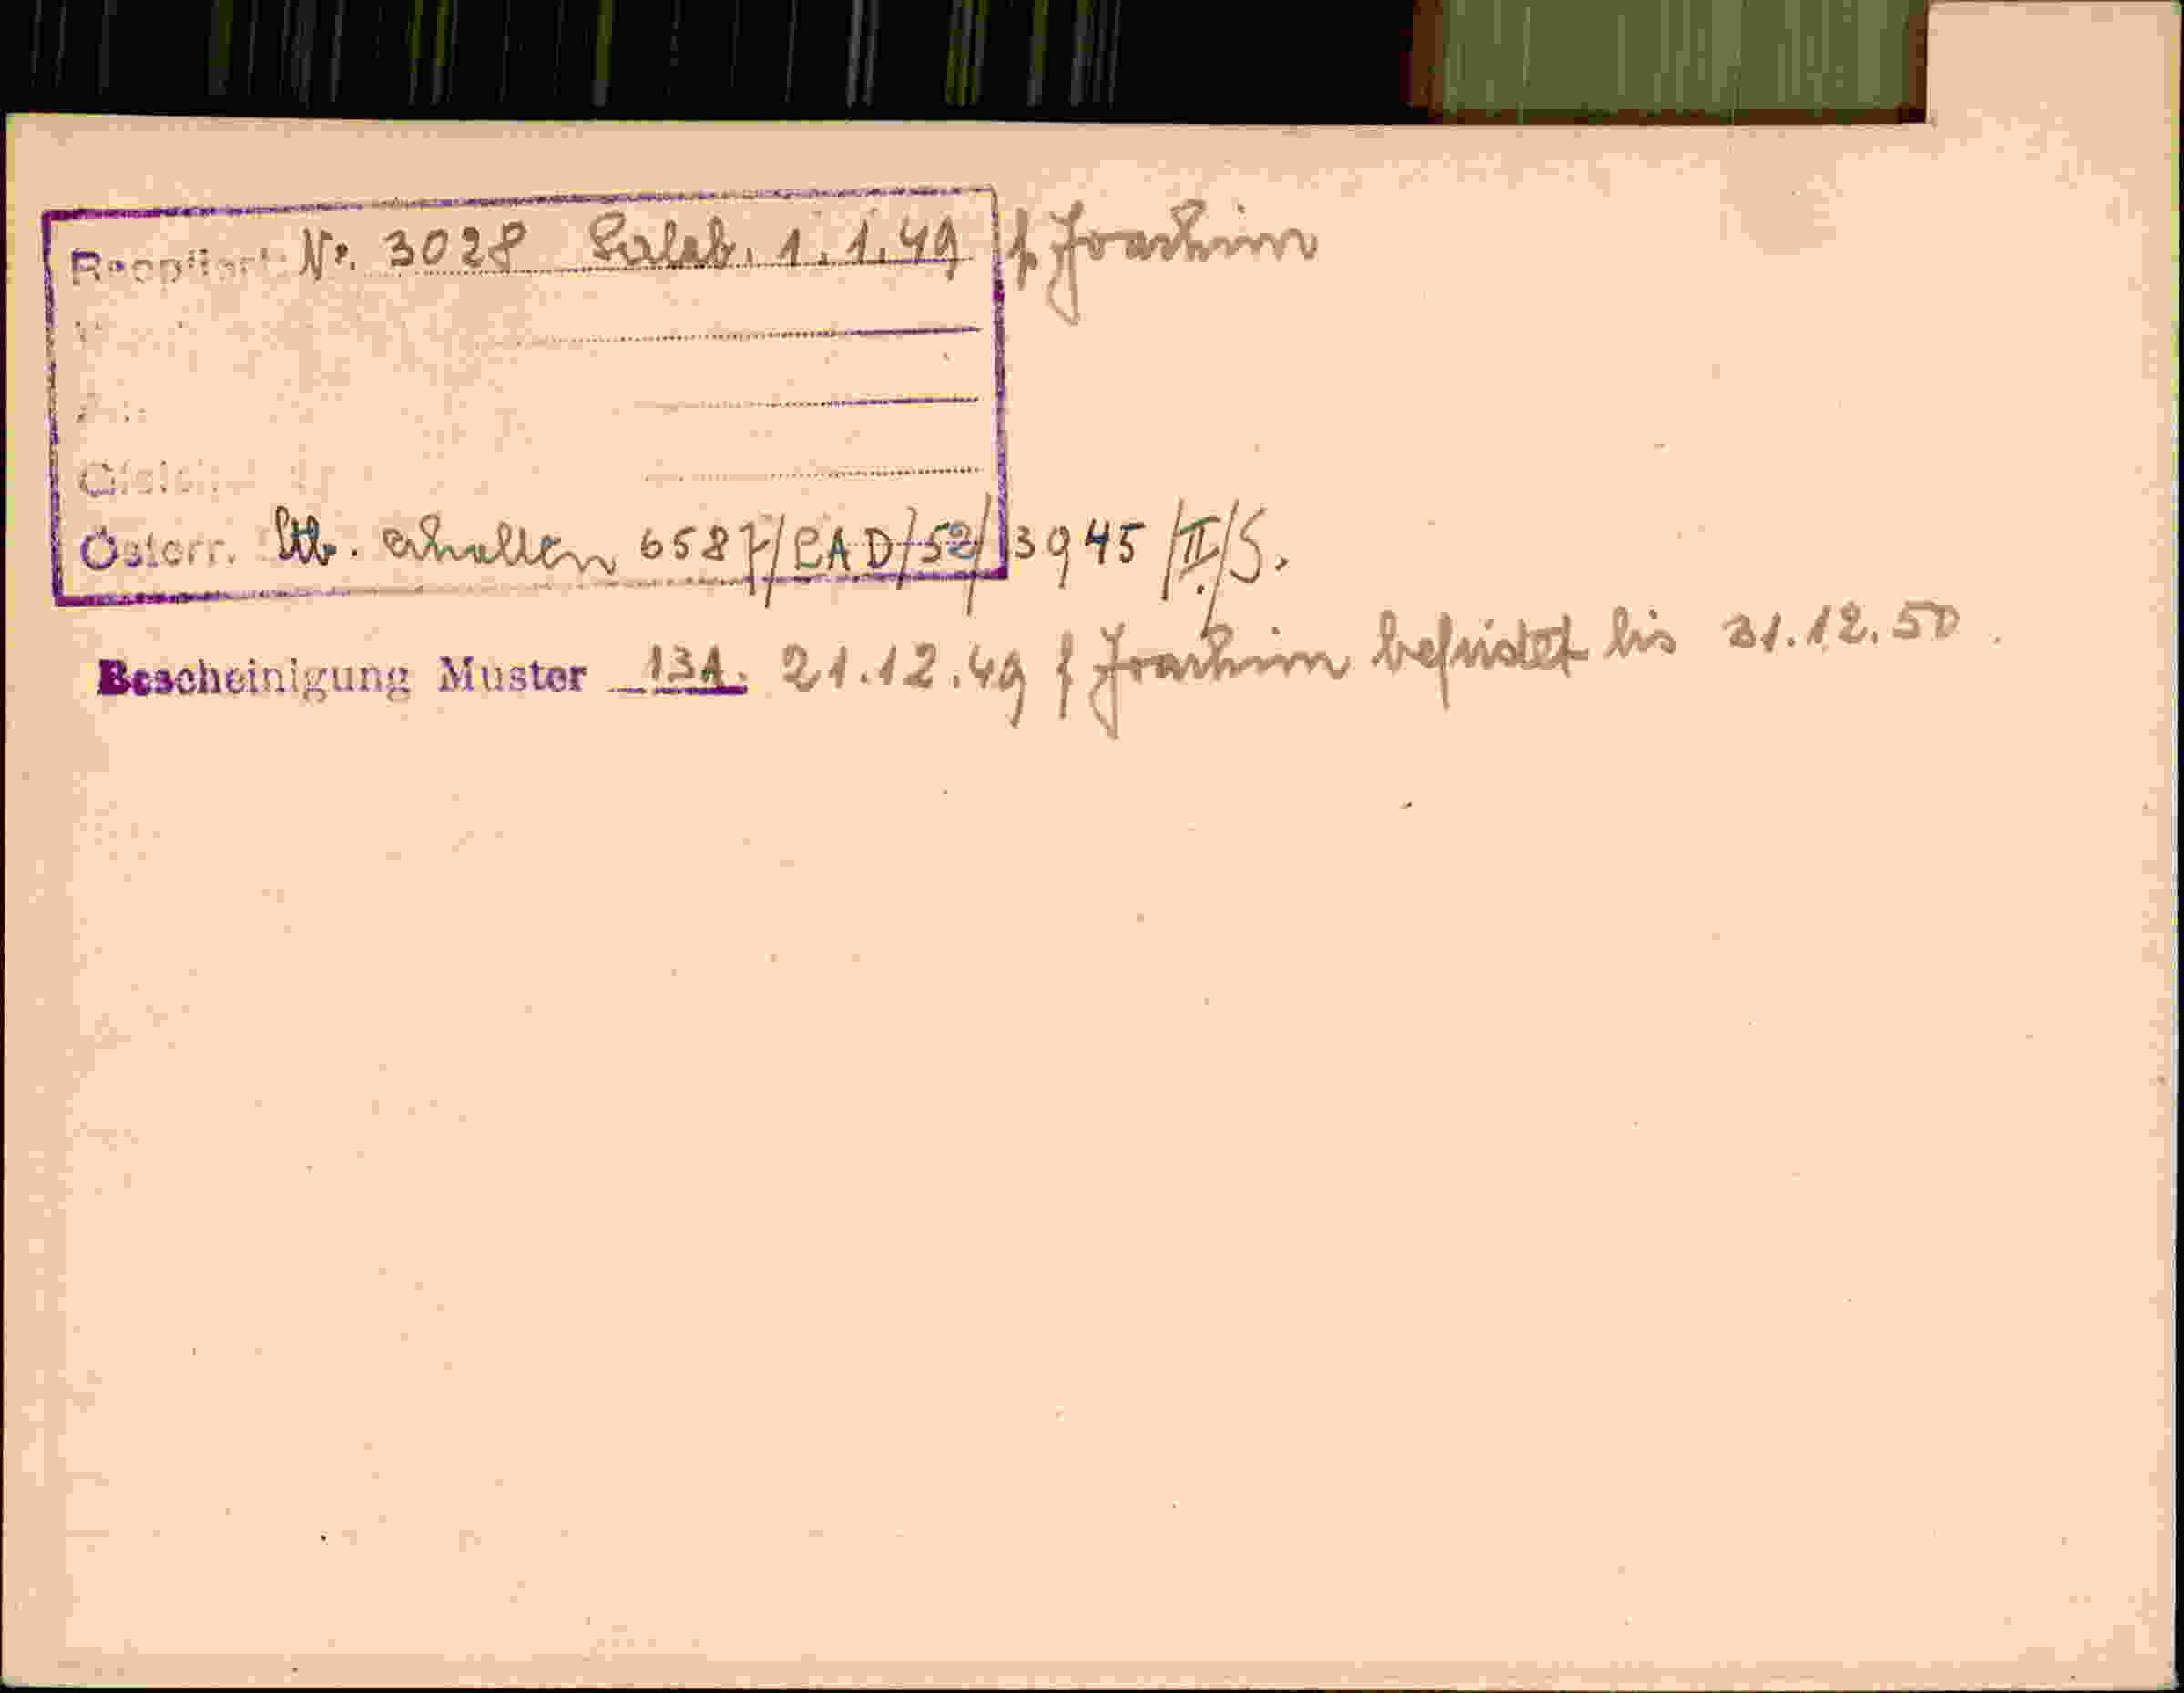 Nr. 3028 Salzb. 1.1.49 f. Joachim
Österr. Stb. erhalten 6587/CAD/52/3945/II/S.
Bescheinigung Muster 13A. 21.12.49 f Joachim befristet bis 31.12.50.